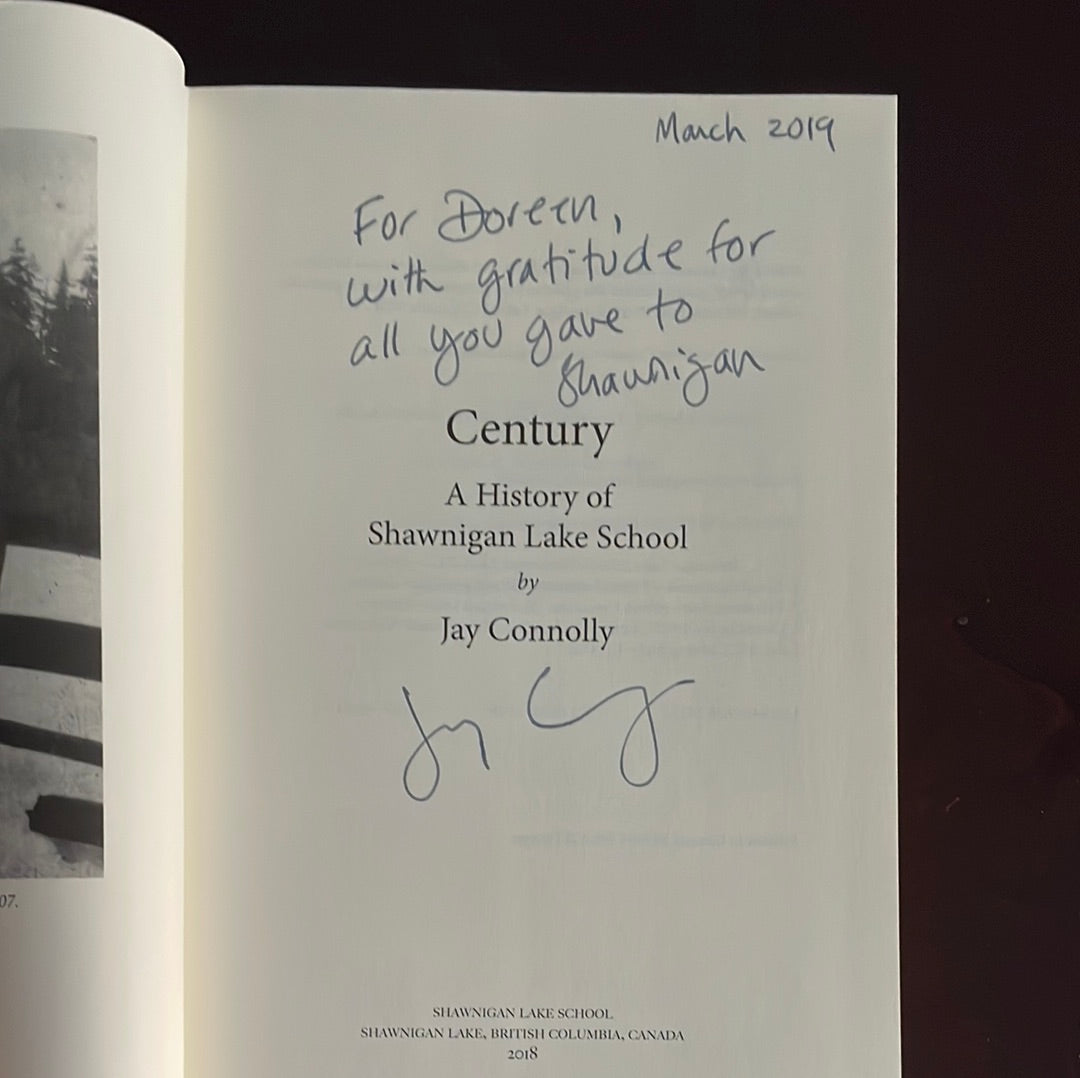 March 2019
For Doreen,
with gratitude for
all you gave to
Shawnigan
Century
A History of
Shawnigan Lake School
by
Jay Connolly
07.
SHAWNIGAN LAKE SCHOOL
SHAWNIGAN LAKE, BRITISH COLUMBIA, CANADA
2018